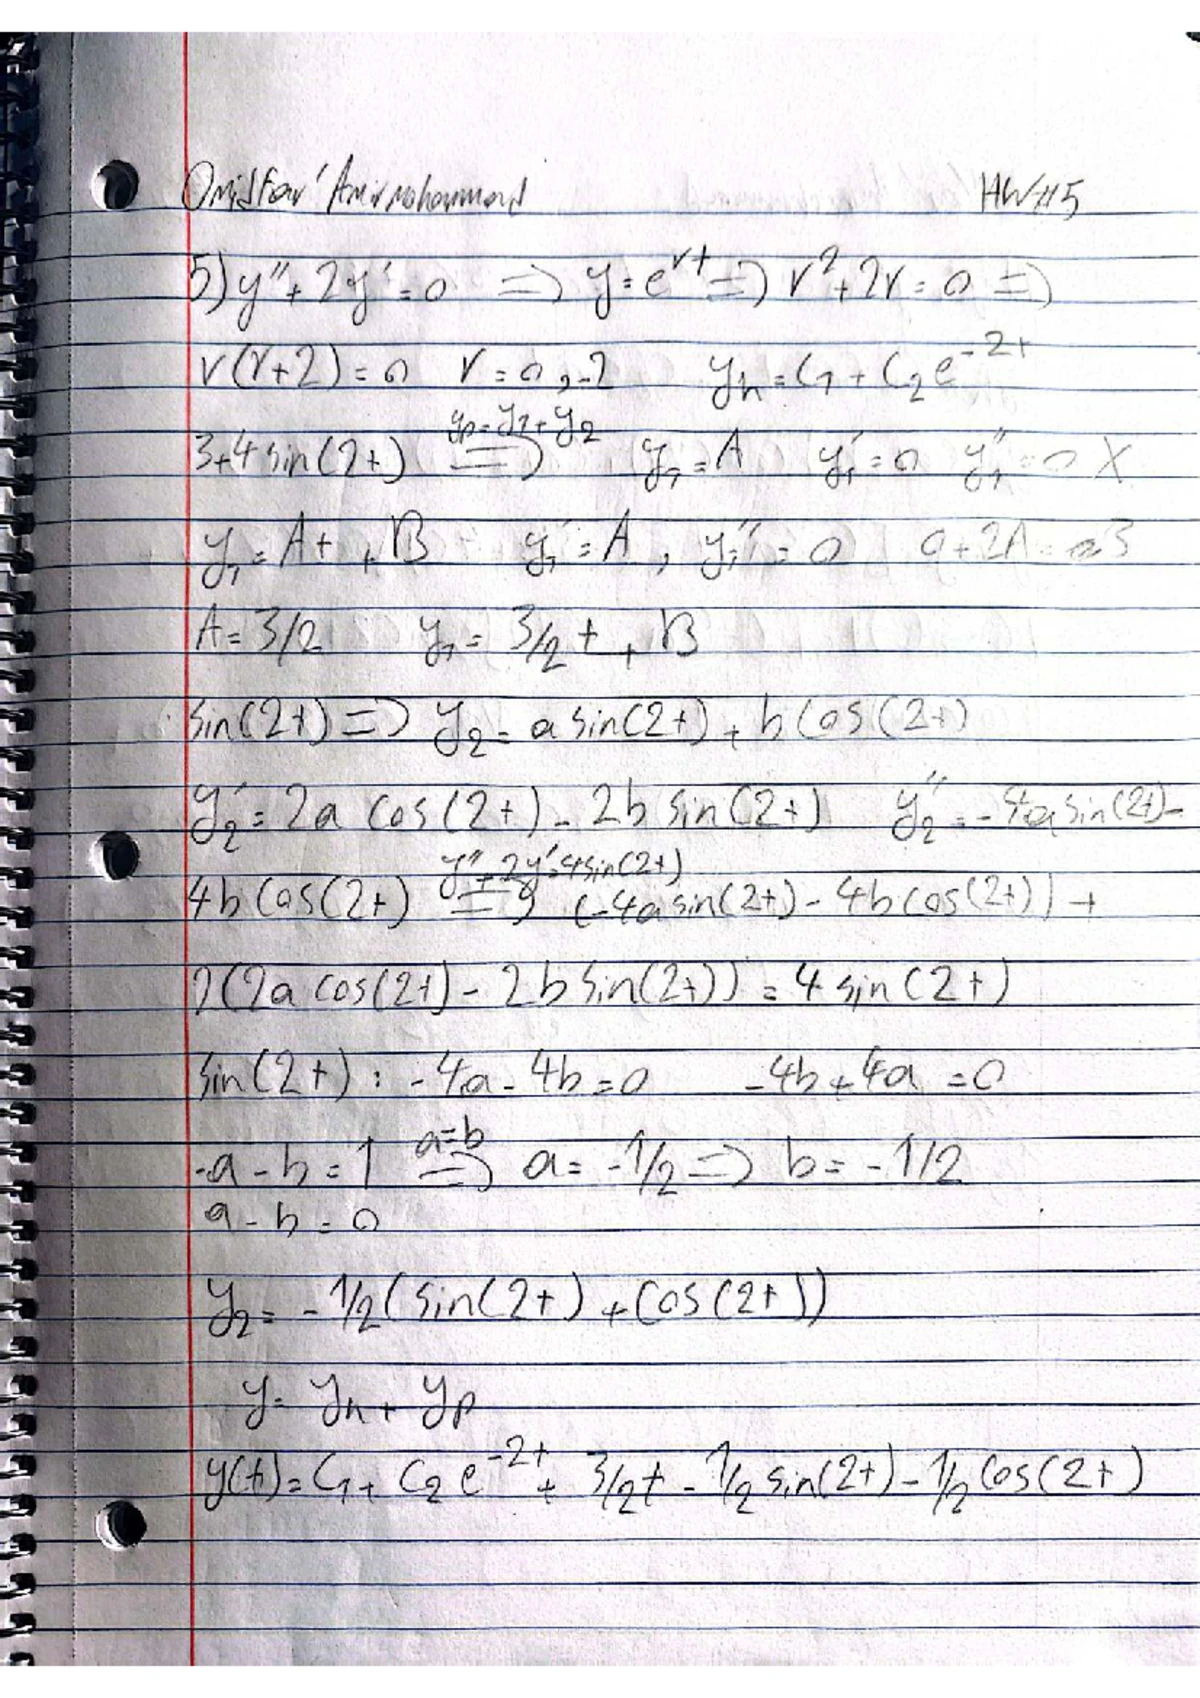 Omidfar Amirmohammad HW#5
5) y'' + 2y' = 0 => y = e^rt => r^2 + 2r = 0 =>
r(r+2) = 0 r = 0, -2 yh = C1 + C2 e^-2t
yp = y1 + y2
3+4 sin(2t) => y1 = A y1' = 0 y1'' = 0 X
y1 = At + B y1' = A, y1'' = 0 0 + 2A = 3
A = 3/2 y1 = 3/2 t + B
sin(2t) => y2 = a sin(2t) + b cos(2t)
y2' = 2a cos(2t) - 2b sin(2t) y2'' = -4a sin(2t) -
y'' + 2y' = 4 sin(2t)
4b cos(2t) => (-4a sin(2t) - 4b cos(2t)) +
2(2a cos(2t) - 2b sin(2t)) = 4 sin(2t)
sin(2t): -4a - 4b = 0 -4b + 4a = 0
a=b
-a - b = 1 => a = -1/2 => b = -1/2
a - b = 0
y2 = -1/2 (sin(2t) + cos(2t))
y = yh + yp
y(t) = C1 + C2 e^-2t + 3/2 t - 1/2 sin(2t) - 1/2 cos(2t)